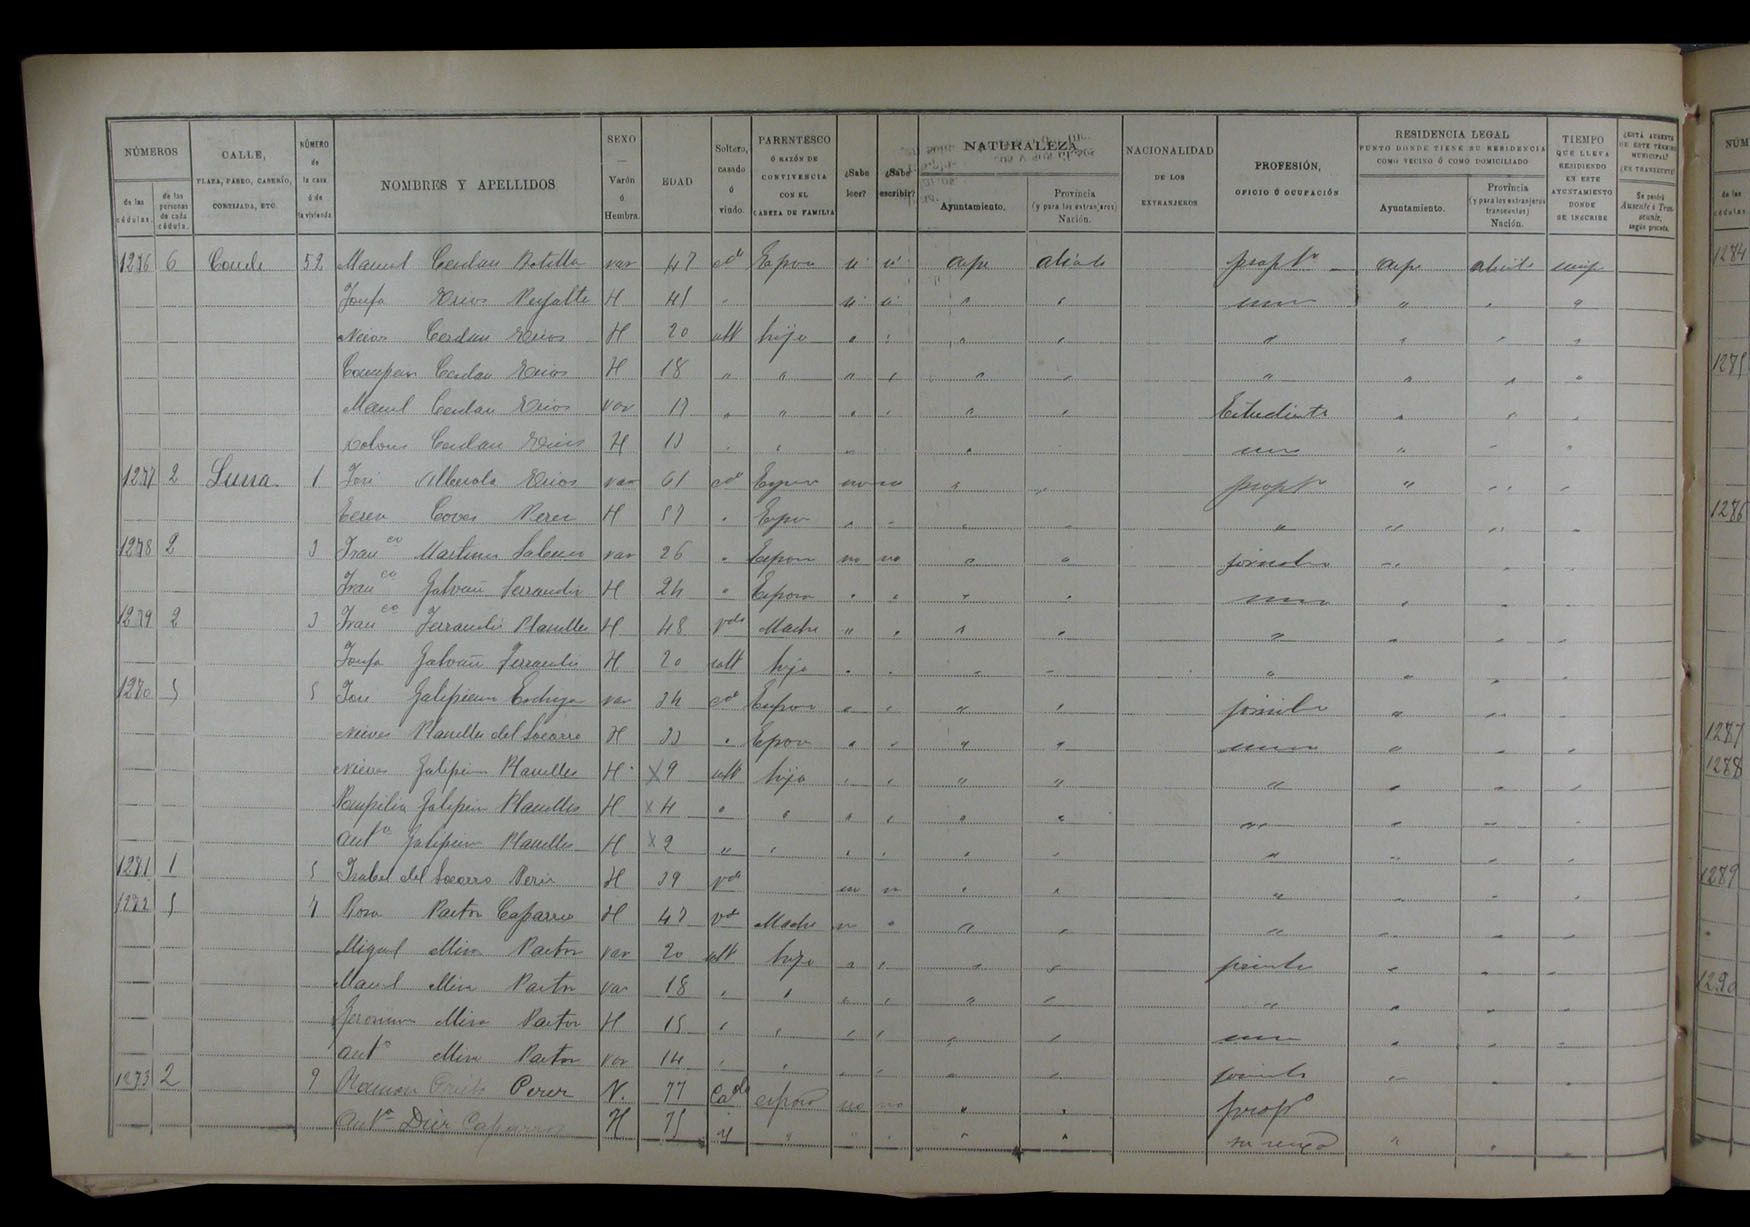 NÚMEROS
de las cédulas.
de las personas de cada cédula.
CALLE,
PLAZA, PASEO, CASERÍO,
CORTIJADA, ETC.
NÚMERO de la casa ó de la vivienda
NOMBRES Y APELLIDOS
SEXO — Varón ó Hembra.
EDAD
Soltero, casado ó viudo.
PARENTESCO Ó RAZÓN DE CONVIVENCIA CON EL CABEZA DE FAMILIA
¿Sabe leer?
¿Sabe escribir?
NATURALEZA
Ayuntamiento.
Provincia (y para los extranjeros) Nación.
NACIONALIDAD DE LOS EXTRANJEROS
PROFESIÓN,
OFICIO Ó OCUPACIÓN
RESIDENCIA LEGAL
PUNTO DONDE TIENE SU RESIDENCIA
COMO VECINO Ó COMO DOMICILIADO
Ayuntamiento.
Provincia (y para los extranjeros transeuntes) Nación.
TIEMPO QUE LLEVA RESIDIENDO EN ESTE AYUNTAMIENTO DONDE SE INSCRIBE
¿ESTÁ AUSENTE DE ESTE TÉRMINO MUNICIPAL?
¿ES TRANSEUNTE?
Se pondrá Ausente ó Transeunte, según proceda.
1276 6 Conde 52 Manuel Cerdan Botella var 47 cdo Esposo si si aspe alicate propto aspe alicate
Josefa Erios H 41 " si si " " " " "
Nieves Cerdan Erios H 20 solt hija " " " " " " " "
Cerdan Erios H 18 " " " " " " " " " "
Manuel Cerdan Erios var 17 " " " " " " Estudiante " " "
Dolores Cerdan Erios H 13 " " " " " "
1277 2 Luna 1 José Alberola Erios var 61 cdo Esposo no no " " propto " " "
Teresa Coves Perez H 57 " Espo " " " " " " " "
1278 2 3 Franco Martinez var 26 " Esposo no no " " jornalo " " "
Franca Galvañ Ferrandiz H 24 " Esposa " " " " " " "
1279 2 3 Franca Ferrandiz Planelles H 48 vda Madre " " " " " " " "
Josefa Galvañ Ferrandiz H 20 solt hija " " " " " " " "
1280 5 5 Jose Galipienso var 34 cdo Esposo " " " " jornalo " " "
Nieves Planelles del Socorro H 33 " Esposa " " " " " " "
Nieves Galipienso Planelles H X 9 solt hija " " " " " " " "
Pompilia Galipienso Planelles H X 4 " " " " " " " " " "
Anta Galipienso Planelles H X 2 " " " " " " " " " "
1281 1 5 Isabel del Socorro Perez H 39 vda no no " " " " " "
1282 5 7 Rosa Pastor Caparros H 47 vda Madre no " " " " " " "
Miguel Mira Pastor var 20 solt hijo " " " " " " "
Manuel Mira Pastor var 18 " " " " " " " " " "
Jeronima Mira Pastor H 15 " " " " " " " " "
Anto Mira Pastor var 14 " " " " " " " " "
1273 2 9 Ramon Perez V. 77 Cado esposo no no " " propo
Anta Diez Caparros H 75 " " " " " " su sexo " "
NÚM
de las cédulas
1284
1285
1286
1287
1288
1289
1290